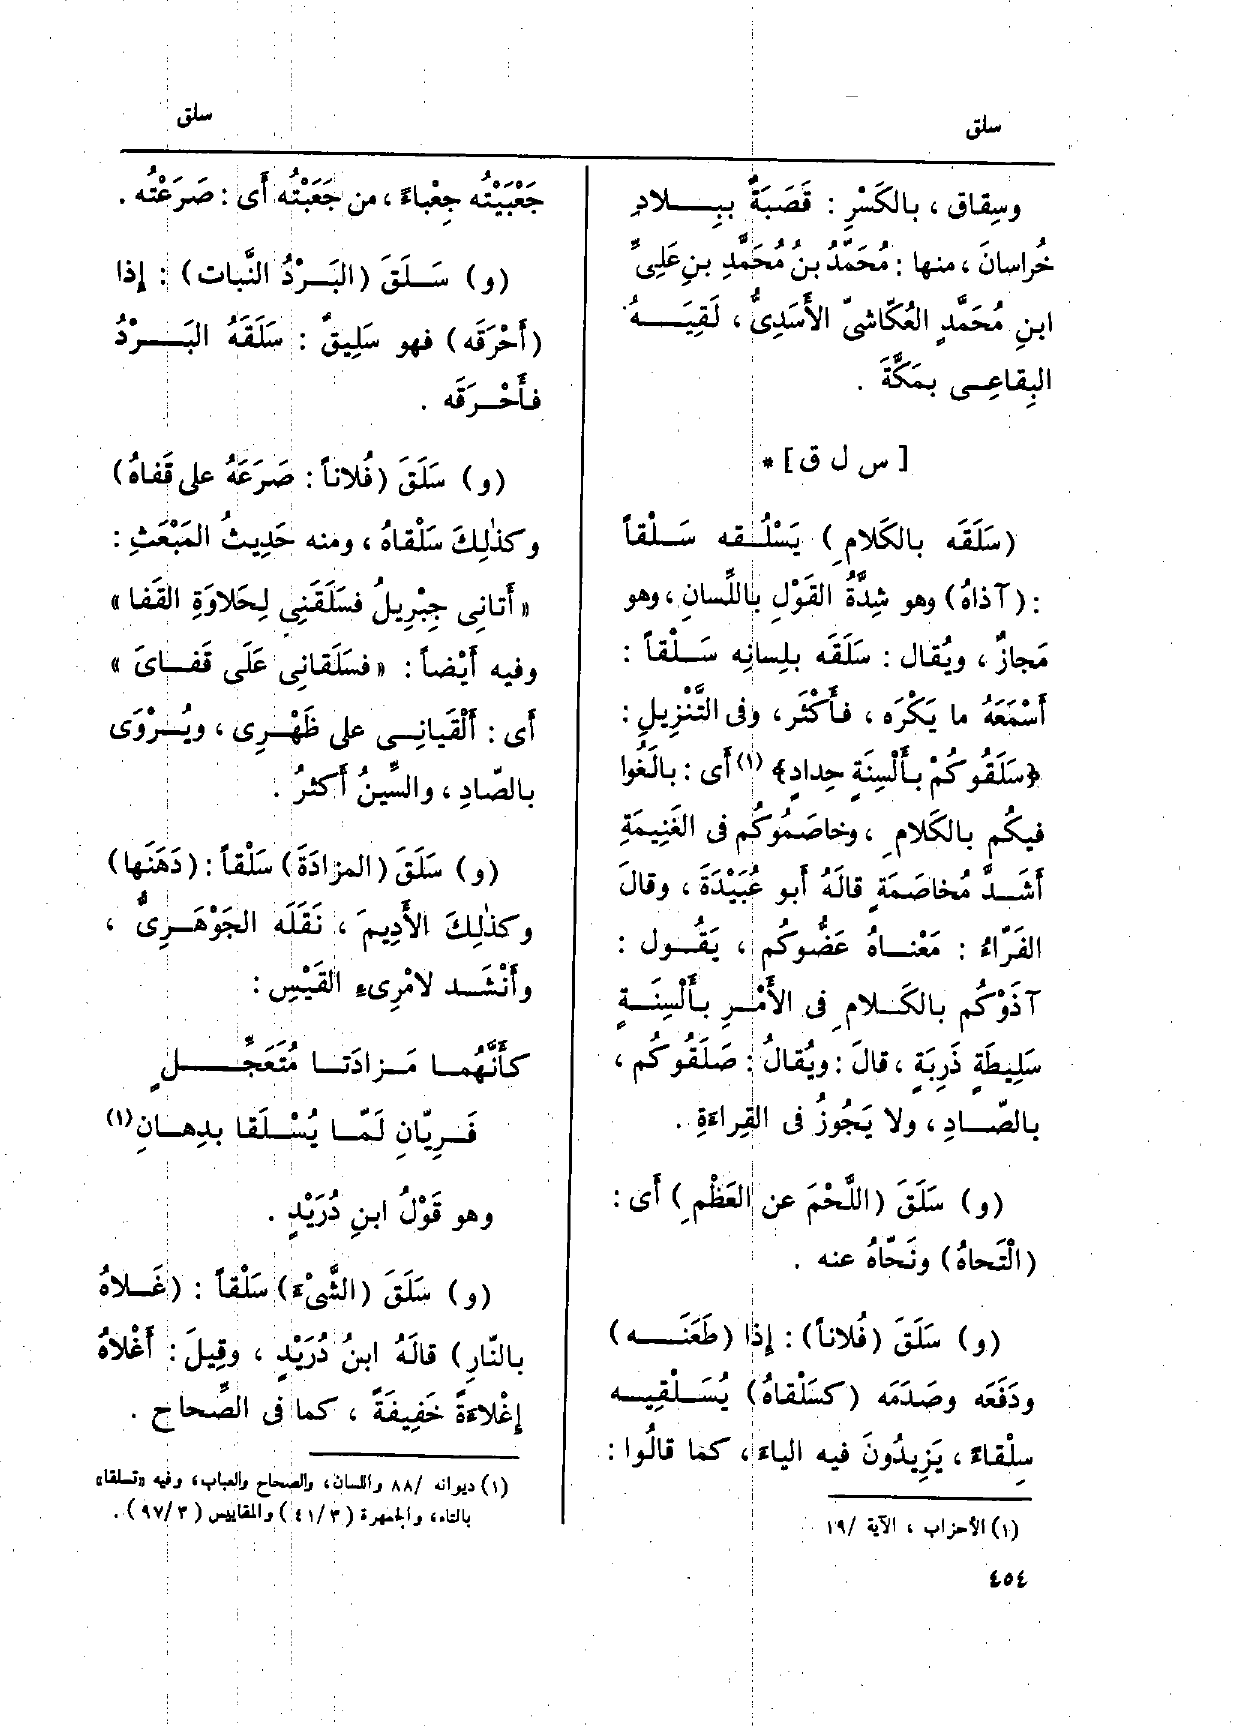 سلق
سلق
وسِقاق ، بالكَسْرِ : قَصَبَةٌ بِبِـلادِ
خُراسانَ ، منها : مُحَمَّدُ بنُ مُحَمَّدِ بنِ عَلِىِّ
ابنِ مُحَمَّدٍ العُكّاشىّ الأَسَدِىُّ ، لَقِيَـهُ
البِقاعِـى بمَكَّةَ .
[ س ل ق ] *
(سَلَقَه بالكَلامِ ) يَسْلُـقه سَـلْقاً
: (آذاهُ) وهو شِدَّةُ القَوْلِ باللِّسانِ ، وهو
مَجازٌ ، ويُقال : سَلَقَه بلِسانِه سَـلْقاً :
أَسْمَعَهُ ما يَكْرَه ، فأَكْثَر ، وفى التَّنْزِيلِ :
﴿سَلَقُوكُمْ بأَلْسِنَةٍ حِدادٍ﴾ (١) أَى : بالَغُوا
فيكُم بالكَلامِ ، وخاصَمُوكُم فى الغَنِيمَةِ
أَشَـدَّ مُخاصَمَةٍ قالَهُ أَبو عُبَيْدَةَ ، وقالَ
الفَرّاءُ : مَعْنـاهُ عَضُّوكُم ، يَقُـول :
آذَوْكُم بالكَـلامِ فى الأَمْـرِ بأَلْسِنَـةٍ
سَلِيطَةٍ ذَرِبَةٍ ، قالَ : ويُقالُ : صَلَقُوكُم ،
بالصّـادِ ، ولا يَجُوزُ فى القِراءَةِ .
(و) سَلَقَ (اللَّحْمَ عن العَظْمِ ) أَى :
(الْتَحاهُ) ونَحّاهُ عنه .
(و) سَلَقَ (فُلاناً) : إِذا (طَعَنَـه )
ودَفَعَه وصَدَمَه (كسَلْقاهُ) يُسَـلْقِيـه
سِلْقاءً ، يَزِيدُونَ فيه الياءَ ، كما قالُوا :
(١) الأحزاب ، الآية /١٩
٤٥٤
جَعْبَيْتُه جِعْباءً ، من جَعَبْتُه أَى : صَرَعْتُه .
(و) سَـلَقَ (البَـرْدُ النَّبات) : إِذا
(أَحْرَقَه) فهو سَلِيقٌ : سَلَقَهُ البَـرْدُ
فأَحْـرَقَه .
(و) سَلَقَ (فُلاناً : صَرَعَهُ على قَفاهُ)
وكذٰلِكَ سَلْقاهُ ، ومنه حَدِيثُ المَبْعَثِ :
« أَتانِى جِبْرِيلُ فسَلَقَنِى لِحَلاوَةِ القَفا »
وفيه أَيْضاً : « فسَلَقانِى عَلَى قَفـاىَ »
أَى : أَلْقَيانِـى على ظَهْـرِى ، ويُـرْوَى
بالصّادِ ، والسِّينُ أَكثرُ .
(و) سَلَقَ (المزادَةَ) سَلْقاً : (دَهَنَها)
وكذٰلِكَ الأَدِيمَ ، نَقَلَه الجَوْهَـرِىُّ ،
وأَنْشَـد لامْرِىءِ القَيْسِ :
كأَنَّهُمـا مَـزادَتـا مُتَعَجِّـلٍ
فَـرِيّانِ لَمّـا يُسْـلَقا بدِهـانِ(١)
وهو قَوْلُ ابنِ دُرَيْدٍ .
(و) سَلَقَ (الشَّىْءَ) سَلْقاً : (غَـلاهُ
بالنّارِ) قالَهُ ابنُ دُرَيْدٍ ، وقِيلَ : أَغْلاهُ
إِغْلاءَةً خَفِيفَةً ، كما فى الصِّحاح .
(١) ديوانه /٨٨ واللسان، والصحاح والعباب، وفيه «تسلقا»
بالتاء، والجمهرة (٣/ ٤١) والمقاييس (٣/ ٩٧) .